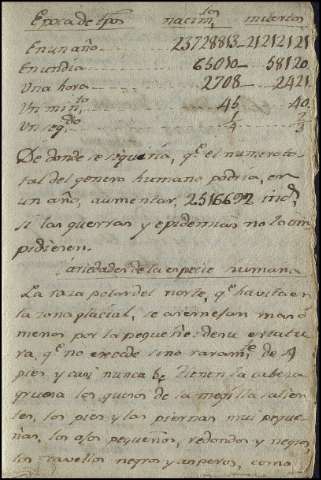 Epoca de tpos nacimtos muertos
En un año 23728813 - 21212121
En un dia 65010 - 58120
Una hora 2708 - 2421
Un minto 45 40
Un segdo 1/4 2/3
De donde se siguería, qe el numero to-
tal del genero humano podria, en
un año, aumentar, 2516692 indd
si las guerras y epidemias no lo im
pidiesen.
Variedades de la especie humana
La raza polar del norte, qe havita en
la zona glacial, se asemejan mas o
menos por la pequeñez de su estatu
ra, qe no excede sino raramte de 4
pies y casi nunca de 5. Tienen la cabeza
gruesa los guesos de la mejilla salien
tes, los pies y las piernas mui peque
ñas, los ojos pequeños, redondos y negros,
los cavellos negros y asperos, como